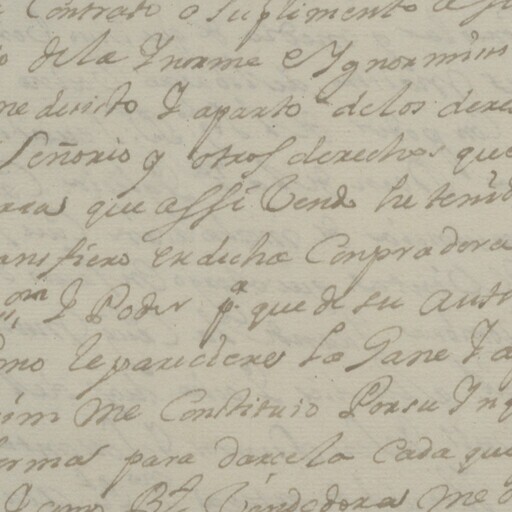 Contrato o suplimento
de la Inorme e Ygnormicis
me decisto Y aparto de los dere
Señorio y otros derechos que
que assi Vendo he tenid
ansfiero en dicha Conpradora
Y Poder p.ª que de su auto
omo le pareciere La Gane Y a
me Constituio Por su Inq
forma para darcela cada que
Y como R.l Vendedora me o